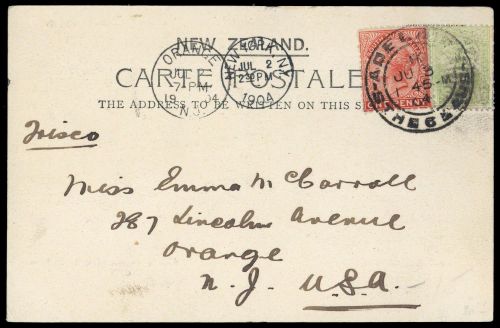 NEW ZEALAND.
CARTE POSTALE
THE ADDRESS TO BE WRITTEN ON THIS
ORANGE
JUL
7-PM
19 04
N.J.
NEW YORK, N.Y.
JUL 2
230PM
1904
ONE PENNY
ADEL
JU
45
Frisco
Miss Emma McCarroll
287 Lincoln Avenue
Orange
N. J. U.S.A.